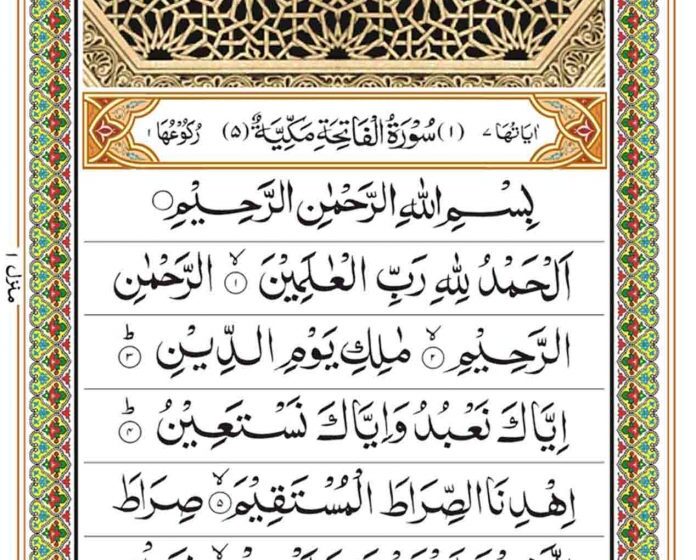 اٰیاتُہَا ۷ (۱) سُوْرَۃُ الْفَاتِحَۃِ مَکِّیَّۃٌ (۵) رُکُوْعُہَا ۱
بِسْمِ اللّٰهِ الرَّحْمٰنِ الرَّحِیْمِ ○
اَلْحَمْدُ لِلّٰهِ رَبِّ الْعٰلَمِیْنَ ۙ﴿۱﴾ الرَّحْمٰنِ
الرَّحِیْمِ ۙ﴿۲﴾ مٰلِكِ یَوْمِ الدِّیْنِ ؕ﴿۳﴾
اِیَّاكَ نَعْبُدُ وَاِیَّاكَ نَسْتَعِیْنُ ؕ﴿۴﴾
اِهْدِنَا الصِّرَاطَ الْمُسْتَقِیْمَ ۙ﴿۵﴾ صِرَاطَ
منزل ۱